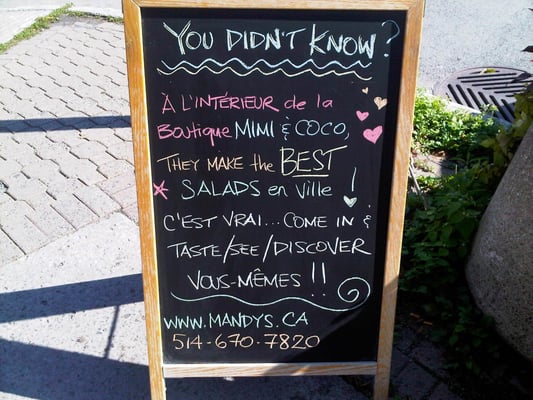 YOU DIDN'T KNOW?
À L'INTÉRIEUR de la
BOUTIQUE MIMI & COCO,
THEY MAKE the BEST
SALADS en ville!
C'EST VRAI... COME IN &
TASTE/SEE/DISCOVER
VOUS-MÊMES!!
WWW.MANDYS.CA
514-670-7820